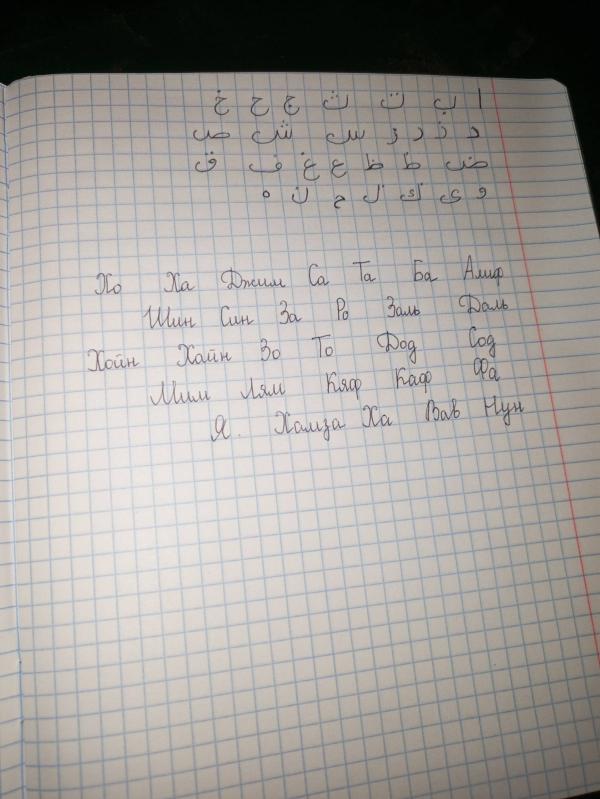 ا ب ت ث ج ح خ
د ذ ر ز س ش ص
ض ط ظ ع غ ف ق
و ى ك ل م ن ه
Алиф Ба Та Са Джим Ха Хо
Даль Заль Ро За Син Шин
Сод Дод То Зо Хайн Хойн
Фа Каф Кяф Лям Мим
Нун Вав Ха Хамза Я.